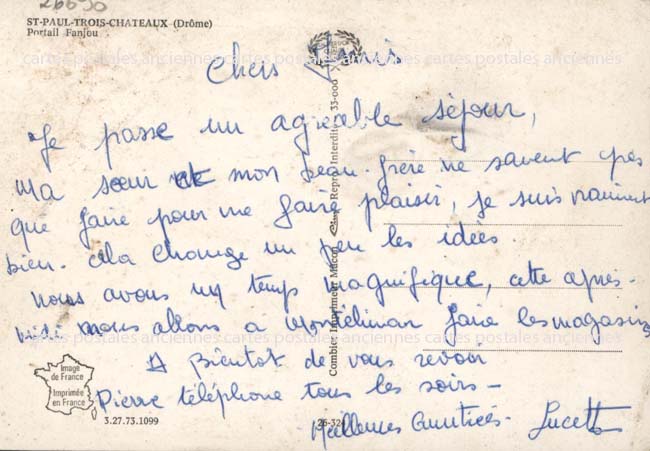 26690
ST-PAUL-TROIS-CHATEAUX (Drôme)
Portail Fanjou
cartes postales anciennes cartes postales anciennes cartes postales anciennes
Chers Amis
Je passe un agréable séjour,
ma sœur et mon beau-frère ne savent pas
que faire pour me faire plaisir, je suis vraiment
bien. cela change un peu les idées
nous avons un temps magnifique, cette après-
midi nous allons a Montélimar faire les magasins
cartes postales anciennes cartes postales anciennes cartes postales anciennes
A Bientôt de vous revoir
Pierre téléphone tous les soirs -
Meilleures Amitiés. Lucette
Image
de France
Imprimée
en France
3.27.73.1099
26-324
Combier Imprimeur Macon Repro. Interdite 33-000